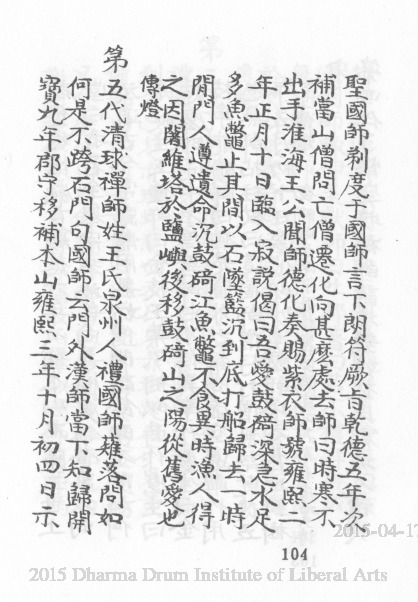 聖國師剃度于國師言下朗符厥旨乾德五年次
補當山僧問亡僧遷化向甚麽處去師曰時寒不
出手淮海王公聞師德化奏賜紫衣師號雍熙二
年正月十日臨入寂説偈曰吾愛鼓𥕐深急水足
多魚鼈止其間以石墜籃沉到底打船歸去一時
閒門人遵遺命沉鼓𥕐江魚鼈不食異時漁人得
之因闍維塔於鹽嶼後移鼓𥕐山之陽從舊愛也
傳燈
第五代清球禪師姓王氏泉州人禮國師薙落問如
何是不跨石門句國師云門外漢師當下知歸開
寶九年郡守移補本山雍熙三年十月初四日示
104
2015-04-17
2015 Dharma Drum Institute of Liberal Arts